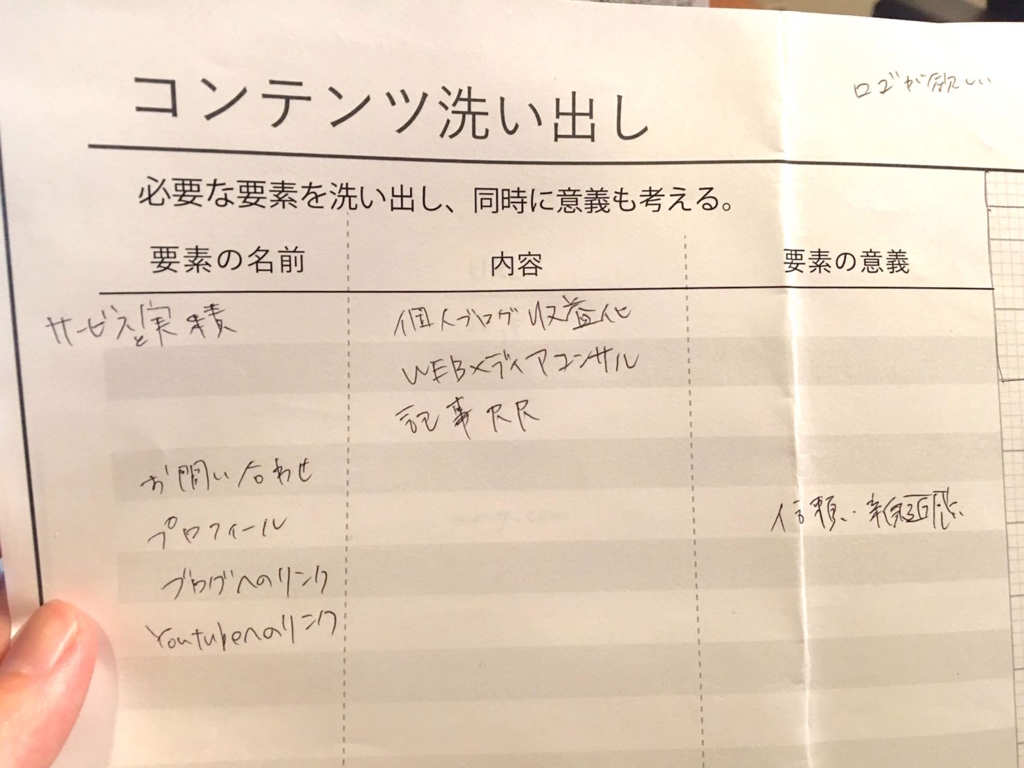 ロゴが欲しい
コンテンツ洗い出し
必要な要素を洗い出し、同時に意義も考える。
要素の名前 内容 要素の意義
サービスと実績 個人ブログ収益化
WEBメディアコンサル
記事RR
お問い合わせ
プロフィール 信頼・親近感
ブログへのリンク
Youtubeへのリンク